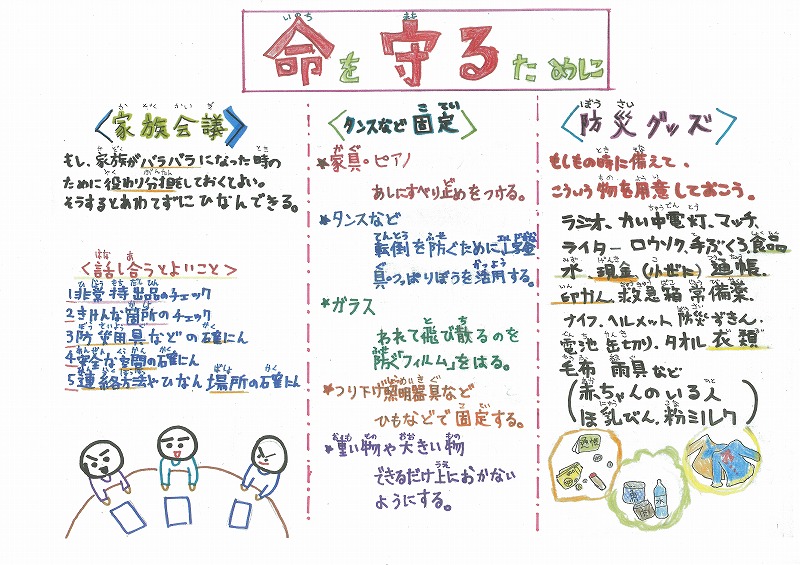 命を守るために
家族会議
もし、家族がバラバラになった時の
ために役わり分担をしておくとよい。
そうするとあわてずにひなんできる。
<話し合うとよいこと>
1非常持出品のチェック
2きけんな箇所のチェック
3防災用具などの確にん
4安全な空間の確にん
5連絡方法やひなん場所の確にん
タンスなど固定
★家具・ピアノ
あしにすべり止めをつける。
★タンスなど
転倒を防ぐために
具。つっぱりぼうを活用する。
★ガラス
われて飛び散るのを
防ぐ「フィルム」をはる。
★つり下げ照明器具など
ひもなどで固定する。
★重い物や大きい物
できるだけ上におかない
ようにする。
防災グッズ
もしもの時に備えて、
こういう物を用意しておこう。
ラジオ、かい中電灯、マッチ、
ライター ロウソク、手ぶくろ、食品
水、現金(小ぜに)通帳、
印かん、救急箱 常備薬、
ナイフ、ヘルメット 防災ずきん、
電池 缶切り、タオル 衣類
毛布 雨具など
(赤ちゃんのいる人
ほ乳びん、粉ミルク)
水